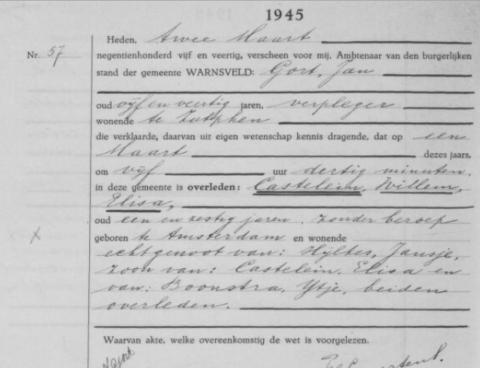 1945
Heden, twee Maart
Nr. 57 negentienhonderd vijf en veertig, verscheen voor mij, Ambtenaar van den burgerlijken
stand der gemeente WARNSVELD: Gort, Jan
oud vijf en veertig jaren, verpleger
wonende te Zutphen
die verklaarde, daarvan uit eigen wetenschap kennis dragende, dat op een
Maart dezes jaars,
om vijf uur dertig minuten,
in deze gemeente is overleden: Castelein, Willem,
Elisa,
oud een en zestig jaren, zonder beroep
geboren te Amsterdam en wonende
x echtgenoot van: Hijltes, Jansje,
zoon van: Castelein, Elisa en
van: Boonstra, Ytje, beiden
overleden.
Waarvan akte, welke overeenkomstig de wet is voorgelezen.
JGort